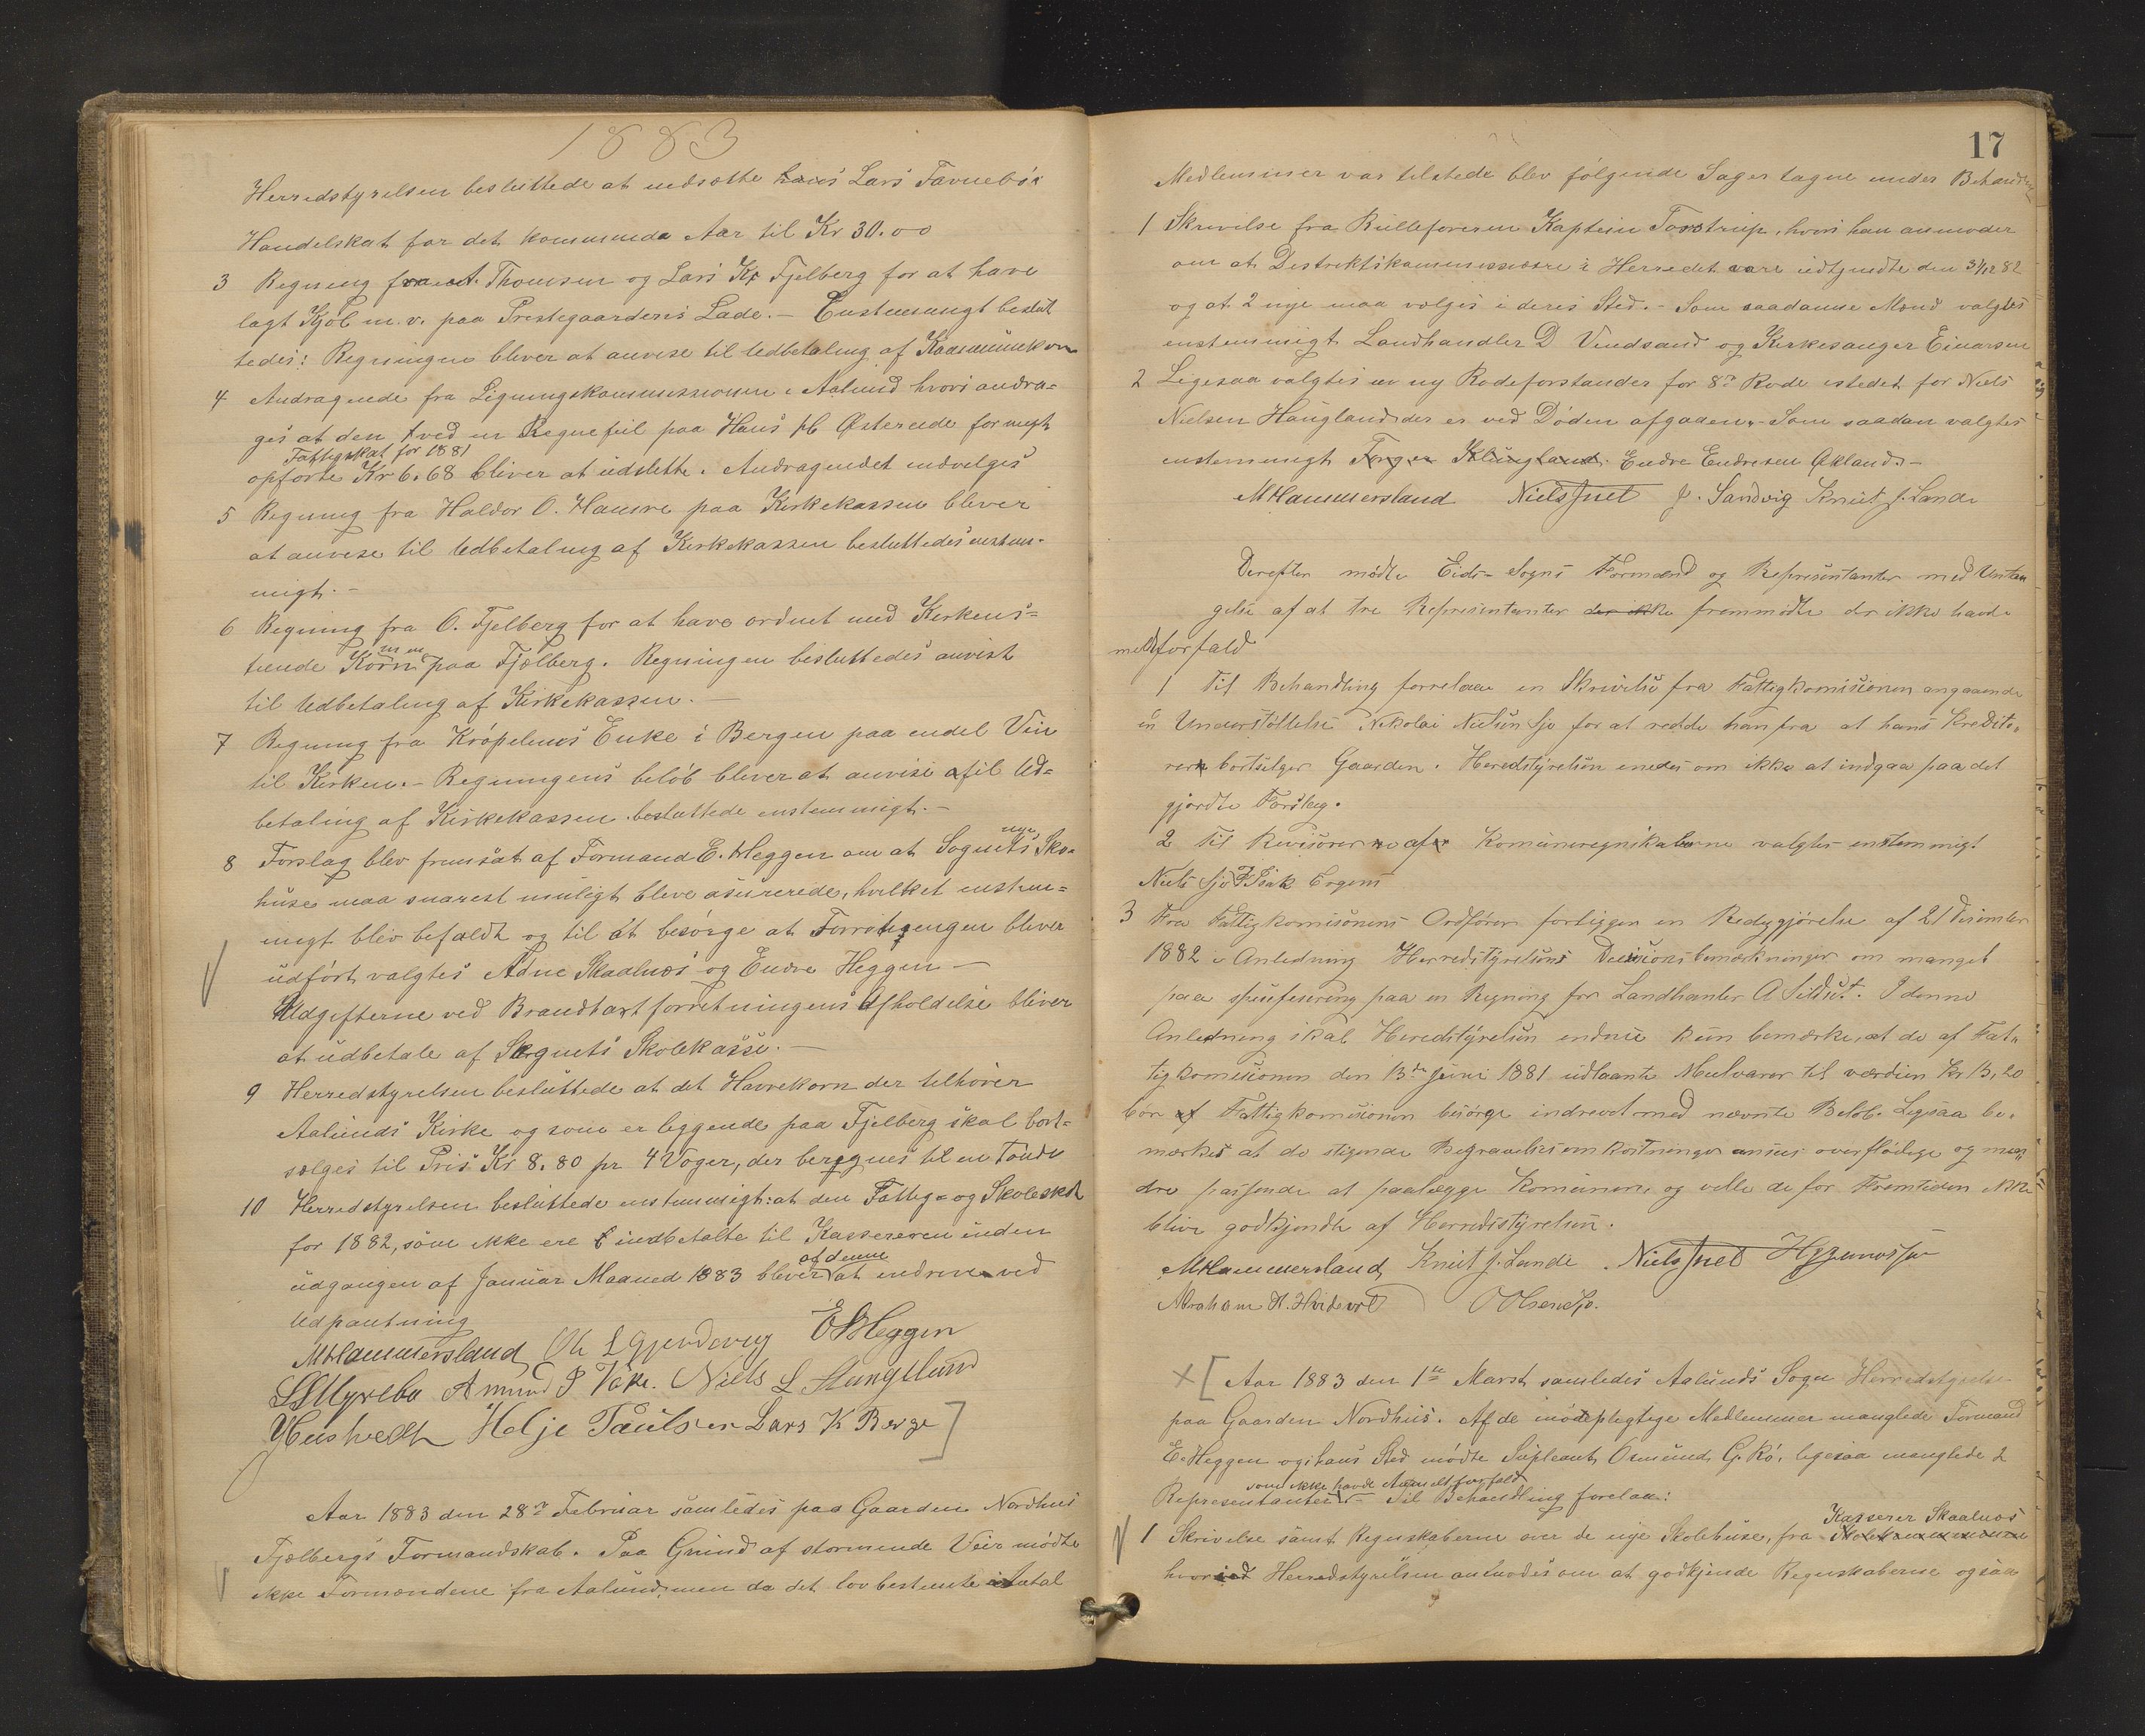 1883
Herredstyrelsen besluttede at nedsætte hans Lars Tavnebös
Handelskat for det kommende Aar til Kr 30.00
3 Regning fra A. Thomsen og Lars Kr Fjelberg for at have
lagt Kjöl m.v. paa Prestegaardens Lade. – Enstemmigt beslut
tedes: Regningen bliver at anvise til Udbetaling af Kommunekassen
4 Andragende fra Ligningskommissionen i Aalund hvori andra=
ges at den ved en Regnefeil paa Hans Østereide formegt
Fattigskat for 1881
opförte Kr 6.68 bliver at udslette. Andragendet indvelges
5 Regning fra Haldor O. Hamre paa Kirkekassen bliver
at anvise til Udbetaling af Kirkekassen besluttedes enstem-
migt. –
6 Regning fra O. Fjelberg for at have ordnet med Kirkens=
tiende Korn m.m. paa Fjælberg. Regningen besluttedes anvist
til Udbetaling af Kirkekassen. –
7 Regning fra Kröpeliens Enke i Bergen paa endel Vin
til Kirken. – Regningens belöb bliver at anvise til Ud=
betaling af Kirkekassen besluttede enstemmigt. –
8 Forslag blev fremsat af Formand E. Heggen om at Sognets nye Sko=
huse maa snarest muligt bleve asurerede, hvilket enstem=
migt blev befaldt og til at besörge at Forretngengen bliver
udfört valgtes Adne Skaalnes og Endre Heggen –
Udgifterne ved Brandtaxtforretningens Afholdelse bliver
at udbetale af Sognets Skolekasse. –
9 Herredstyrelsen besluttede at det Havrekorn der tilhörer
Aalunds Kirke og som er leggende paa Fjelberg skal bort=
sælges til Pris Kr 8.80 pr 4 Voger, der beregnes til en Tönde
10 Herredstyrelsen besluttede enstemmigt: at den Fattig= og Skoleskat
for 1882, som ikke ere indbetalte til Kassereren inden
udgangen af Januar Maaned 1883 bliver af denne at indrive ved
Udpantning
M Hammersland Ole L Gjerdevig E B Heggen
Myrebø Amund P Vake. Niels L Stangelund
Husvedt Helje Paulsen Lars K Berge
Aar 1883 den 28de Februar samledes paa Gaarden Nordhus
Fjælbergs Formandskab. Paa Grund af stormende Veir mödte
ikke Formændene fra Aalund, men da det lovbestemte Antal
17
Medlemmer var tilstede blev fölgende Sager tagne under Behandling
1 Skrivelse fra Rulleföreren Kaptein Tostrup, hvori han anmoder
om at Destriktskommissærere i Herredet vare udtjendte den 31/12 82
og at 2 nye maa vælges i deres Sted. – Som saadanne Mænd valgtes
enstemmigt Landhandler D Vindsand og Kirkesanger Einarsen
2 Ligesaa valgtes en ny Rodeforstander for 8de Rode istedet for Niels
Nielsen Haugland der er ved Döden afgaaen. – Som saadan valgtes
enstemmigt Torger Klungland. Endre Endresen Økland. –
M Hammersland Niels Juel J. Sandvig Knut J. Lande
Derefter mödte Eids-Sogns Formænd og Representanter med Undta
gelse af at tre Representanter der ikke fremmödte der ikke havde
meldt forfald
1 Til Behandling forrelaae en Skrivelse fra Fattigkomisionen angaaende
en Understöttelse Nikolai Nielsen Sjo for at redde han fra at hans Kredito„
rer bortselger Gaarden. Heredstyrelsen enedes om ikke at indgaa paa det
gjordte Forslag.
2 Til Revisorer af Komuneregnskaberne valgtes enstemmigt
Niels Sjo & Isak Ergens
3 Fra Fattigkomisionens Ordförer forligger en Redegjörelse af 21 Desember
1882 i Anledning Herredstyrelsens Desisions bemærkninger om manget
paa spesifisering paa en Regning fra Landhanler A Sildest. I denne
Anledning skal Heredstyrelsen endnu kun bemærke, at de af Fat„
tigkomisionen den 13de Juni 1881 udlaante Melvarer til værdien Kr 13,20
bör af Fattigkomisionen besörge indrevet med nævnte Belöb. Ligesaa be„
mærkes at de stigende Begravelsesomkostninger anses overflödige og min„
dre passende at paalægge Komunen, og ville de for Fremtiden ikke
blive godkjendte af Herredstyrelsen.
M Hammersland Knut J. Lande Niels Juel
Abraham H. Hvidevol O Olsen Sjo.
× [ Aar 1883 den 1ste Marst samledes Aalunds Sogns Herredstyrelse
paa Gaarden Nordhus. Af de mödepligtige Medlemmer manglede Formand
E. Heggen og i hans Sted mödte Supleant Osmund G. Rö, ligesaa manglede 2
som ikke havde Anmeldt forfald
Representanter – Til Behandling forelaa:
Kasserer Skaalnes
1 Skrivelse samt Regnskaberne over de nye Skolehuse, fra Skolekommissionen
hvorved Herredstyrelsen anmodes om at godkjende Regnskaberne ogsaa